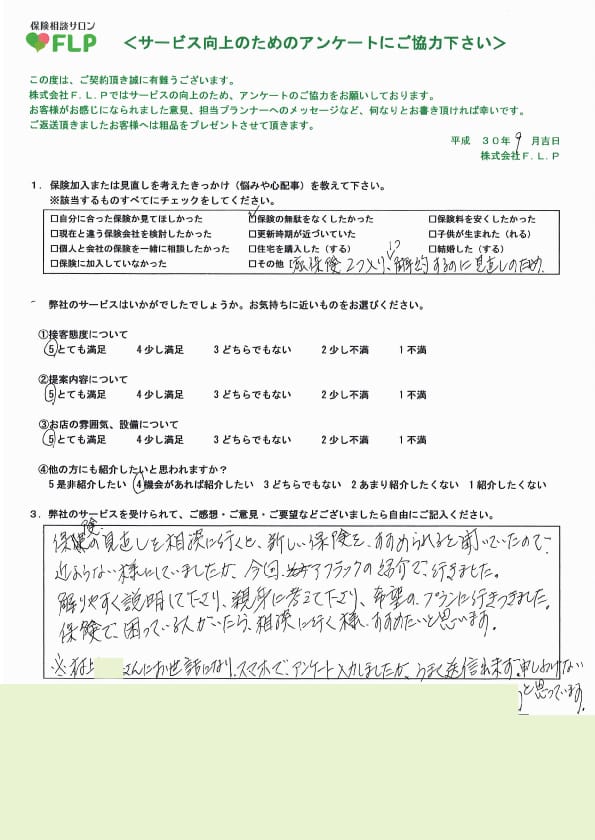 保険相談サロン
FLP
＜サービス向上のためのアンケートにご協力下さい＞
この度は、ご契約頂き誠に有難うございます。
株式会社F.L.Pではサービスの向上のため、アンケートのご協力をお願いしております。
お客様がお感じになられました意見、担当プランナーへのメッセージなど、何なりとお書き頂ければ幸いです。
ご返送頂きましたお客様へは粗品をプレゼントさせて頂きます。
平成 30年 9 月吉日
株式会社F.L.P
1. 保険加入または見直しを考えたきっかけ（悩みや心配事）を教えて下さい。
※該当するものすべてにチェックをしてください。
□自分に合った保険が見てほしかった □保険の無駄をなくしたかった □保険料を安くしたかった
□現在と違う保険会社を検討したかった □更新時期が近づいていた □子供が生まれた（れる）
□個人と会社の保険を一緒に相談したかった □住宅を購入した（する） □結婚した（する）
□保険に加入していなかった □その他 保険2つ入り、1つ解約するのに見直しのため、
弊社のサービスはいかがでしたでしょうか。お気持ちに近いものをお選びください。
①接客態度について
5とても満足 4少し満足 3どちらでもない 2少し不満 1不満
②提案内容について
5とても満足 4少し満足 3どちらでもない 2少し不満 1不満
③お店の雰囲気、設備について
5とても満足 4少し満足 3どちらでもない 2少し不満 1不満
④他の方にも紹介したいと思われますか？
5是非紹介したい 4機会があれば紹介したい 3どちらでもない 2あまり紹介したくない 1紹介したくない
3. 弊社のサービスを受けられて、ご感想・ご意見・ご要望などございましたら自由にご記入ください。
保険の見直しを相談に行くと、新しい保険を、すすめられると聞いていたので、
近よらない様にしていましたが、今回、アフラックの紹介で、行きました。
解りやすく説明して下さり、親身に考えて下さり、希望の、プランに行きつきました。
保険で困っている人がいたら、相談に行く様、すすめたいと思います。
さんにお世話になり、スマホで、アンケート入力しましたが、うまく送信出来ず、申しわけない
と思っています。